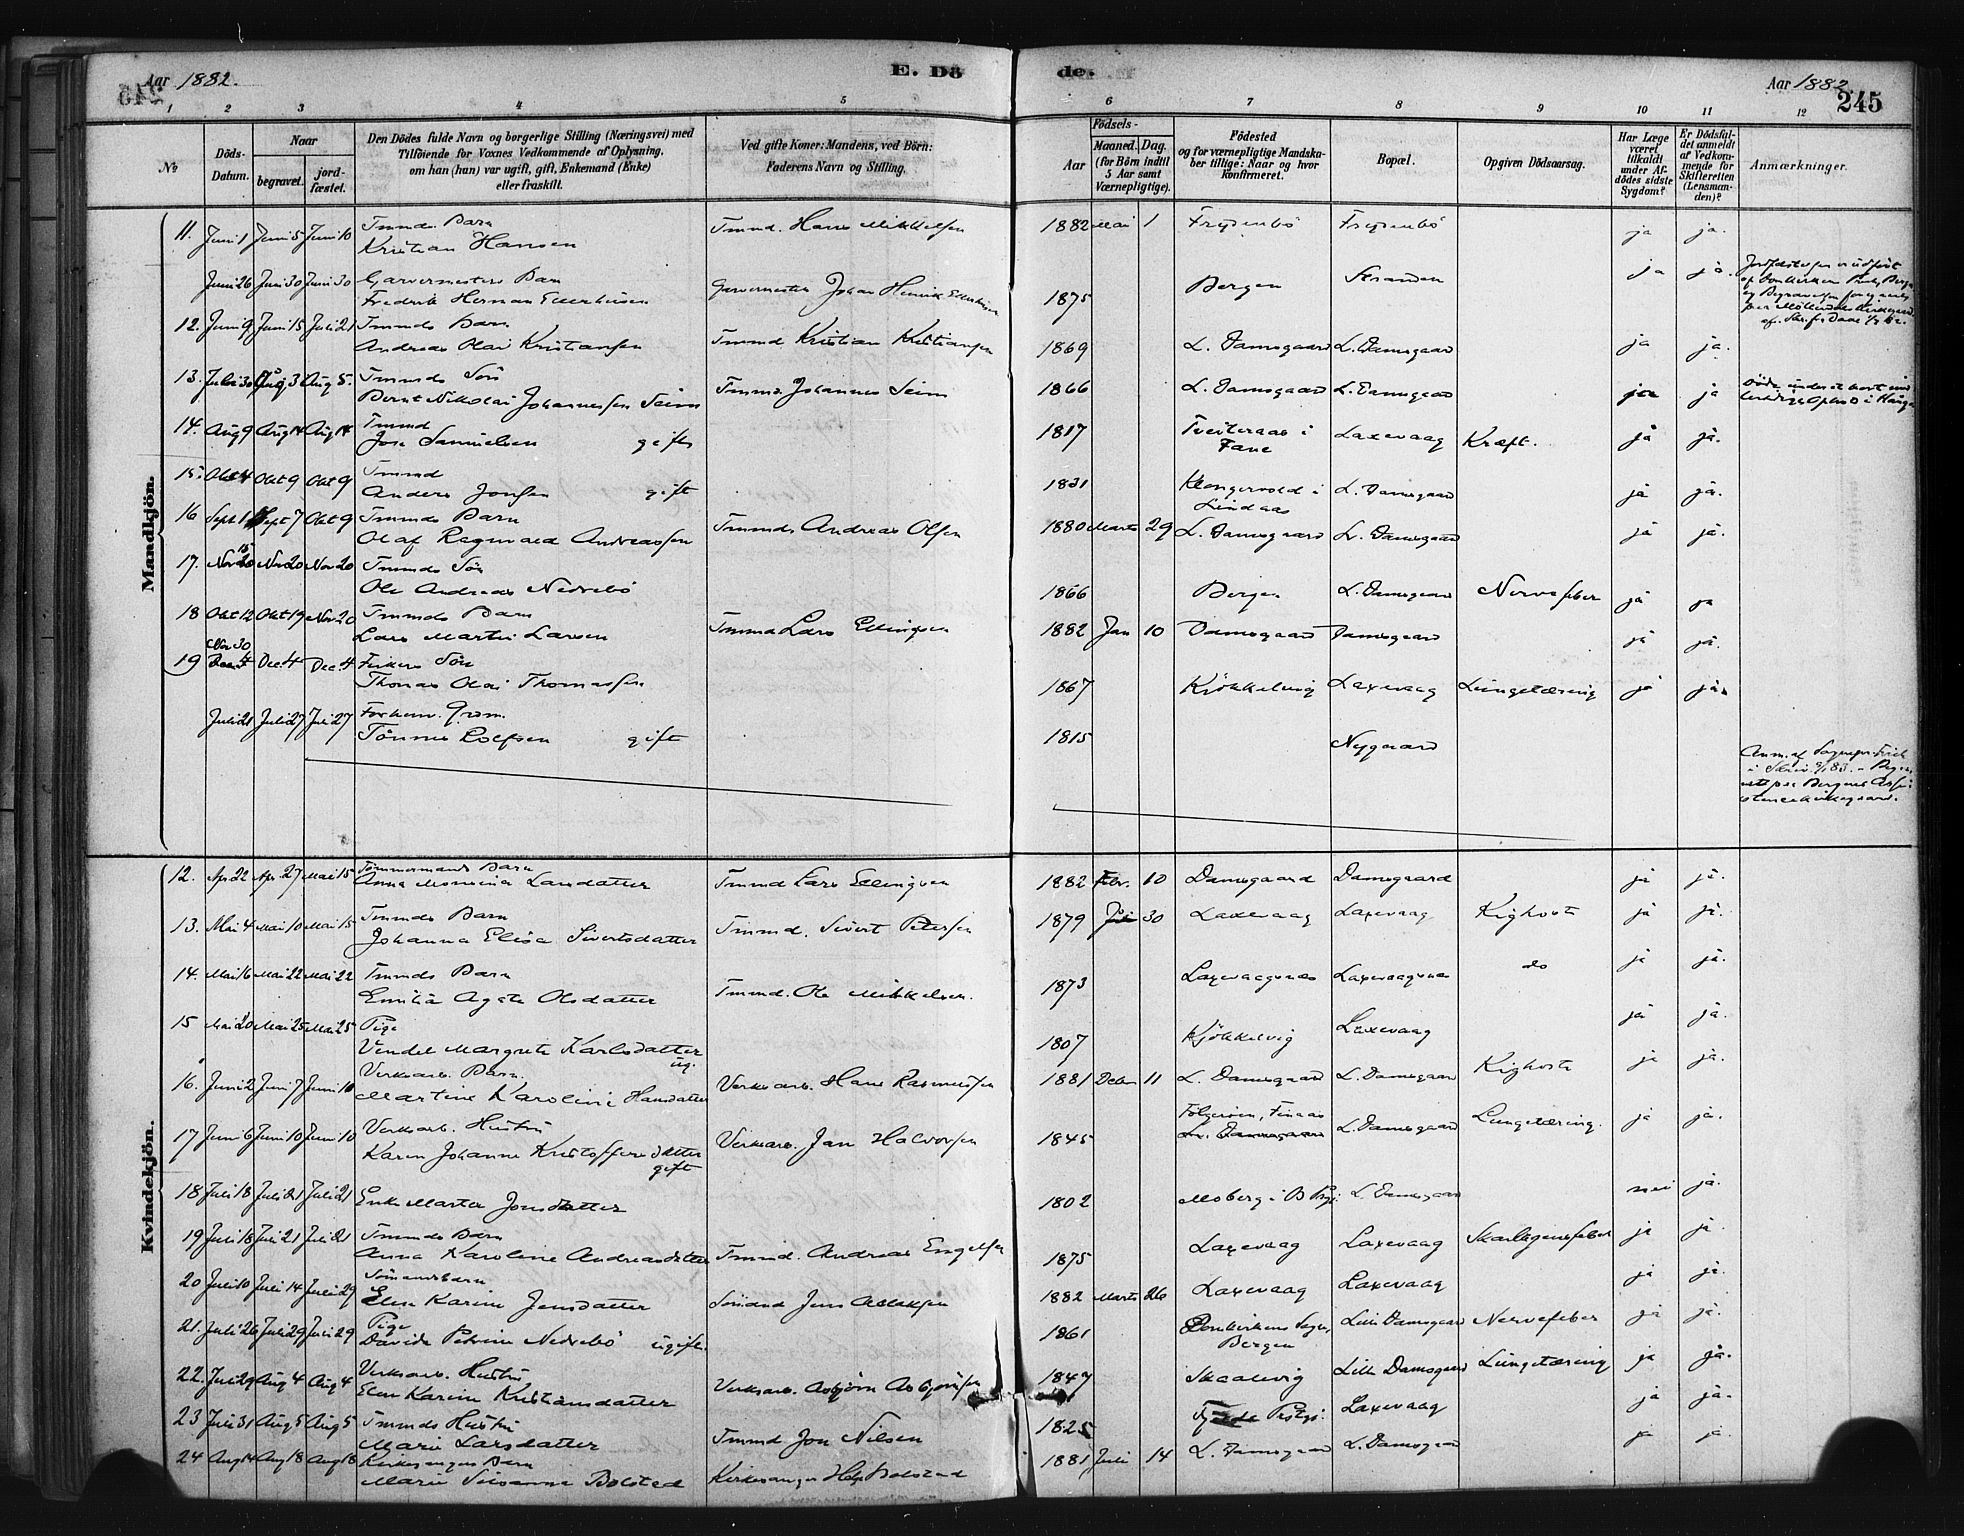 Aar 1882.
E. Dö
de.
Aar 1882.
245
1 2 3 4 5 6 7 8 9 10 11 12
No
Döds-Datum.
Naar
begravet.
jord-fæstet.
Den Dödes fulde Navn og borgerlige Stilling (Næringsvei) med
Tilföiende for Voxnes Vedkommende af Oplysning,
om han (hun) var ugift, gift, Enkemand (Enke)
eller fraskilt.
Ved gifte Koner: Mandens, ved Börn:
Faderens Navn og Stilling.
Födsels-
Aar
Maaned. Dag.
(for Börn indtil
5 Aar samt
Værnepligtige).
Födested
og for værnepligtige Mandska-
ber tillige: Naar og hvor
konfirmeret.
Bopæl.
Opgiven Dödsaarsag.
Har Læge
været
tilkaldt
under Af-
dödes sidste
Sygdom?
Er Dödsfal-
det anmeldt
af Vedkom-
mende for
Skifteretten
(Lensman-
den)?
Anmærkninger.
Mandkjön.
11. Juni 1 Juni 5 Juni 10 Tmmds. Barn
Kristian Hansen Tmmd. Hans Mikkelsen 1882 Mai 1 Frydenbö Frydenbö ja ja.
Juni 26 Juni 30 Juni 30 Garvermesters Barn
Fredrik Herman Ellerhusen Garvermester Johan Henrik Ellerhusen 1875 Bergen Stranden ja ja.
12. Juni 9 Juni 15 Juli 21 Tmmds Barn
Andreas Olai Kristiansen Tmmd Kristian Kristiansen 1869 L. Damsgaard L. Damsgaard ja ja.
13. Juli 30 Aug 3 Aug 5. Tmmds Sön
Bernt Nikolai Johannessen Seim Tmmd. Johannes Seim 1866 L. Damsgaard L. Damsgaard ja ja
14. Aug 9 Aug 14 Aug 14 Tmmd
Jon Samuelsen gift 1817 Tveiteraas i Fane Laxevaag Kræft. ja ja.
15. Okt 4 Okt 9 Okt 9 Tmmd
Anders Jonsen gift 1831 Lindaas L. Damsgaard ja ja.
16 Sept 1 Sept 7 Okt 9 Tmmds Barn
Olaf Ragnvald Andreassen Tmmds Andreas Olsen 1880 Marts 29 L. Damsgaard L. Damsgaard ja ja.
17. Nov 15 Nov 20 Nov 20 Tmmds Sön
Ole Andreas Nedrebö 1866 Bergen L. Damsgaard Nervefeber ja ja
18 Okt 12 Okt 19 Nov 20 Tmmds Barn
Lars Martin Larsen Tmmd Lars Ellingsen 1882 Jan 10 Damsgaard Damsgaard ja ja.
19 Nov 30 Dec. 4 Dec. 4 Fiskers Sön
Thomas Olai Thomassen 1867 Kjökkelvig Laxevaag Lungetæring ja ja.
Juli 21 Juli 27 Juli 27
Tönnes Rolfsen gift 1815 Nygaard
Kvindekjön.
12. Apr. 22 Apr. 27 Mai 15 Tömmermands Barn
Anna Monsina Larsdatter Tmmd Lars Ellingsen 1882 Febr. 10 Damsgaard Damsgaard ja ja.
13. Mai 4 Mai 10 Mai 15 Tmmds Barn
Johanna Elisa Sivertsdatter Tmmd. Sivert Petersen 1879 30 Laxevaag Laxevaag Kighoste ja ja.
14. Mai 16 Mai 22 Mai 22 Tmmds Barn
Emilia Agate Olsdatter Tmmd. Ole Mikkelsen. 1873 Laxevaagnæs Laxevaagnæs do ja ja.
15 Mai 20 Mai 25 Mai 25 Pige
Vendel Margrete Karlsdatter ug. 1807 Kjökkelvig Laxevaag ja ja.
16. Juni 2 Juni 7 Juni 10 Verksarb. Barn.
Martine Karoline Hansdatter Verksarb. Hans Rasmussen 1881 Decbr 11 L. Damsgaard L. Damsgaard Kighoste ja ja.
17 Juni 6 Juni 10 Juni 10 Verksarb. Hustru
Karen Johanne Kristoffersdatter gift Verksarb. Jan Halvorsen 1845 Finaas L. Damsgaard L. Damsgaard Lungetæring. ja ja.
18 Juli 18 Juli 21 Juli 21 Enke Marta Jonsdatter 1802 Moberg i L. Damsgaard nei ja.
19 Juli 18 Juli 21 Juli 21 Tmmds Barn
Anna Karoline Andreasdatter Tmmd. Andreas Engelsen 1875 Laxevaag Laxevaag Skarlagensfeber ja ja
20 Juli 10 Juli 14 Juli 29 Sömandsbarn
Elen Karine Jensdatter Sömand Jens 1882 Marts 26 Laxevaag Laxevaag ja ja.
21. Juli 26 Juli 29 Juli 29 Pige
Davida Petrine Nedrebö ugift. 1861 Domkirkens Sogn, Bergen Lille Damsgaard Nervefeber ja ja.
22. Juli 29 Aug 4 Aug 4 Verksarb. Hustru
Elen Karine Kristiansdatter Verksarb. Asbjörn Asbjörnsen 1847 Skaalevig Lille Damsgaard Lungetæring ja ja.
23 Juli 31 Aug 5 Aug 5 Tmmds Hustru
Marie Larsdatter Tmmd Jon Nilsen 1825 Laxevaag ja ja.
24 Aug 14 Aug 18 Aug 18 Kirkesangers Barn
Marie Susanna Bolstad Kirkesanger Bolstad 1881 Juli 14 L. Damsgaard L. Damsgaard ja ja.